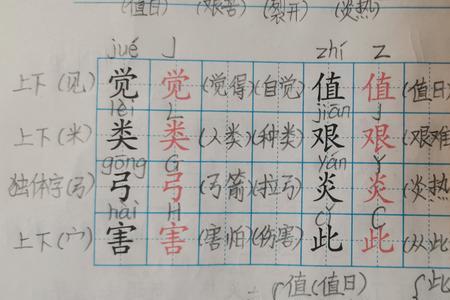 (值日) (艰苦) (裂开) (炎热)
jué J zhí Z
上下(见) 觉 觉 (觉得)(自觉) 值 值 (值日)
lèi L jiān J
上下(米) 类 类 (人类)(种类) 艰 艰 (艰难
gōng G yán Y
独体字(弓) 弓 弓 (弓箭)(拉弓) 炎 炎 (炎热
hài H cǐ C
上下(宀) 害 害 (害怕)(伤害) 此 此 (从)此
值(值日) 此